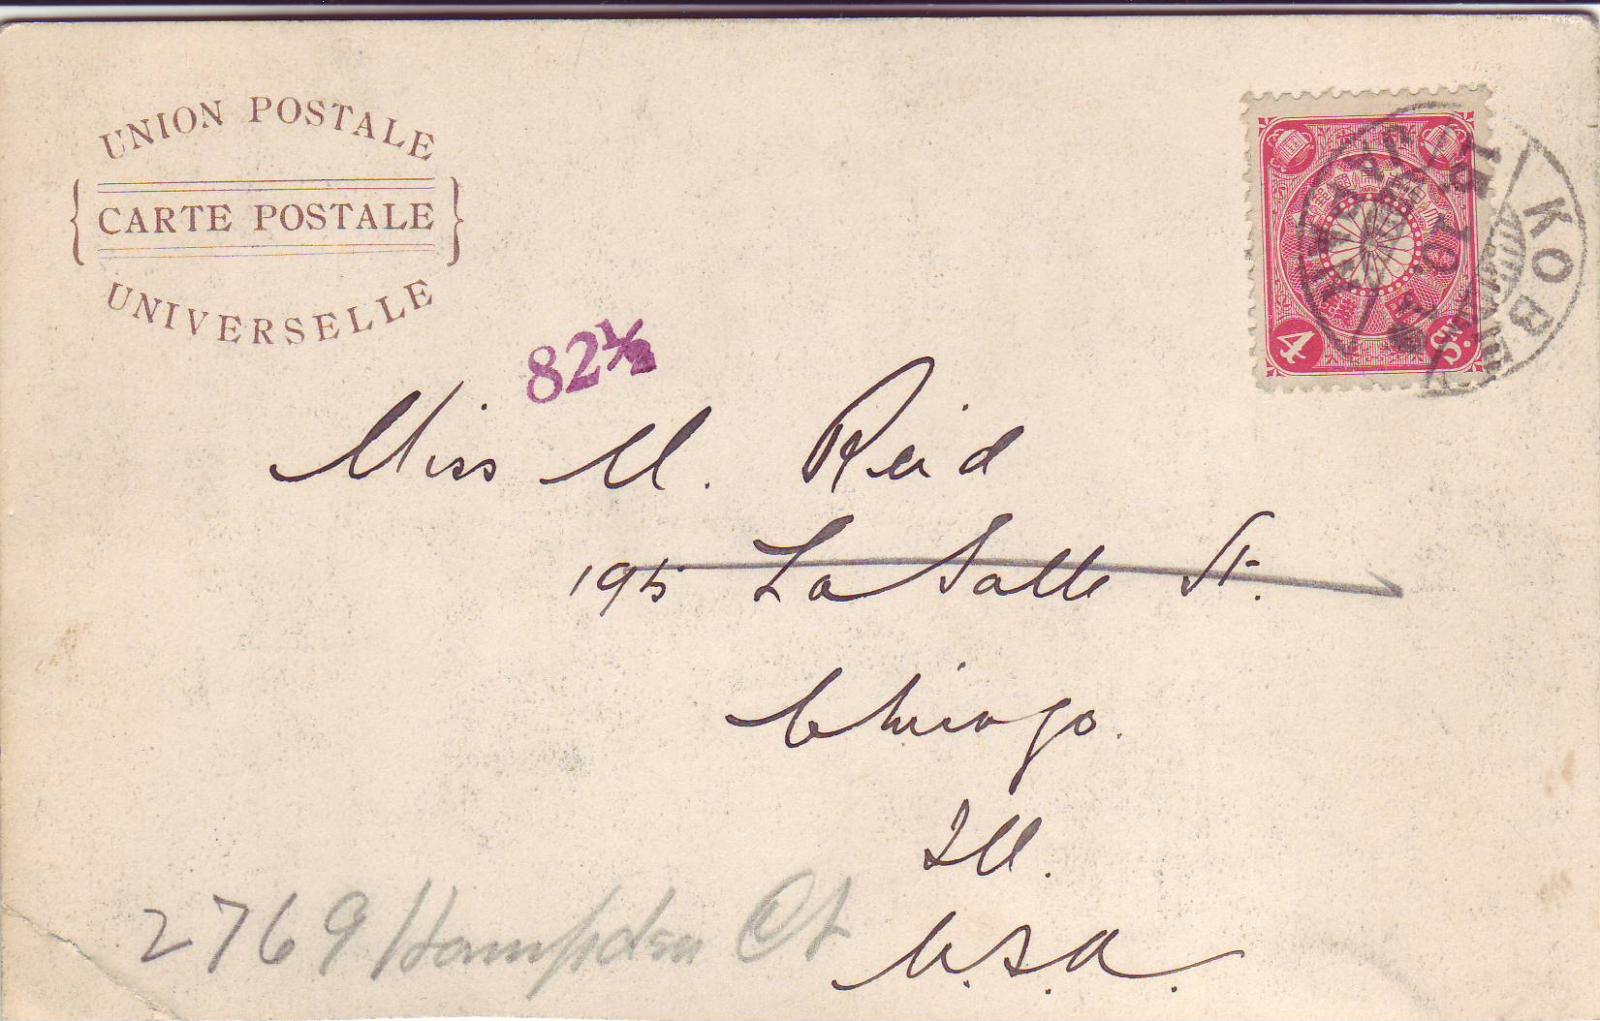 UNION POSTALE
CARTE POSTALE
UNIVERSELLE
4 Sn.
KOBE
JAPAN
82½
Miss M. Reid
195 La Salle St.
Chicago.
Ill.
U.S.A.
2769 Hampden Ct